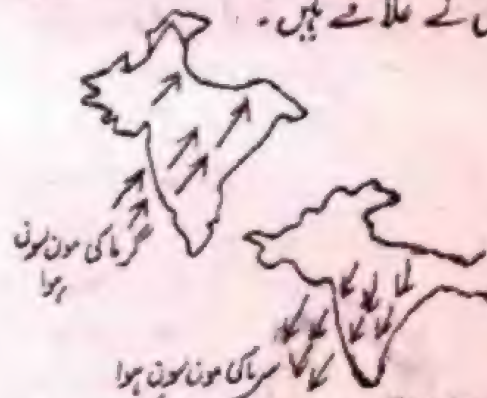 کے علاقے ہیں۔
گرما کی مون سون
ہوا
سرما کی مون سون ہوا